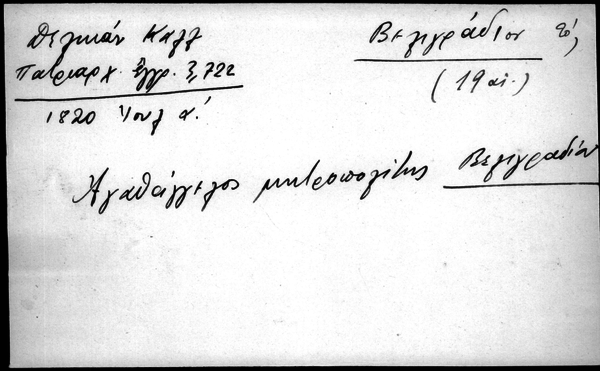 Δελικάν Καλλ
Πατριαρχ. Ἔγγρ. 3,722
1820 Ἰουλ α΄.
Βελιγράδιον τό,
(19 αἰ.)
Ἀγαθάγγελος μητροπολίτης Βελιγραδίου